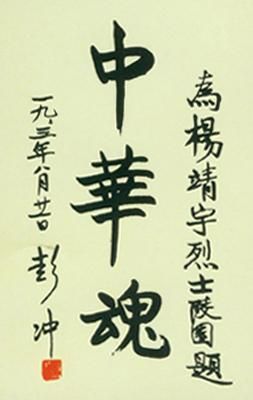 為楊靖宇烈士陵園題
中華魂
一九、三年八月廿日
彭冲